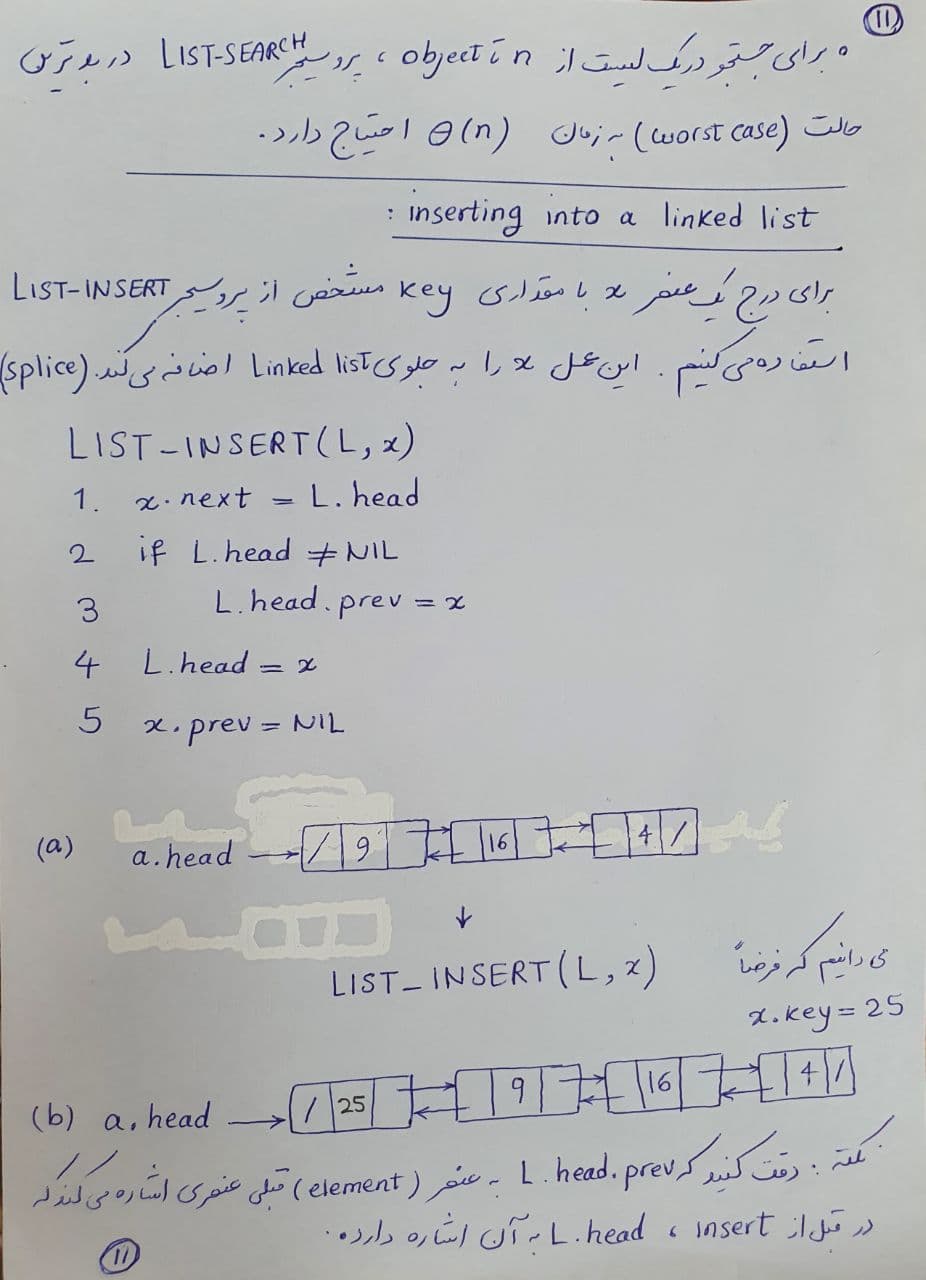 11
• برای جستجو در یک لیست از n تا object ، پروسیجر LIST-SEARCH در بدترین
حالت (worst case) به زمان Θ(n) احتیاج دارد.
inserting into a linked list :
برای درج یک عنصر x با مقداری key مشخص از پروسیجر LIST-INSERT
استفاده می‌کنیم . این عمل x را به جلوی Linked list اضافه می‌کند. (splice)
LIST-INSERT(L, x)
1. x.next = L.head
2 if L.head ≠ NIL
3 L.head.prev = x
4 L.head = x
5 x.prev = NIL
(a) a.head → / 9 16 4 /
↓
LIST_INSERT(L, x) می دانیم که فرضاً
x.key = 25
(b) a.head → / 25 9 16 4 /
نکته : دقت کنید که L.head.prev به عنصر (element) قبلی عنصری اشاره می‌کند که
در قبل از insert ، L.head به آن اشاره دارد.
11